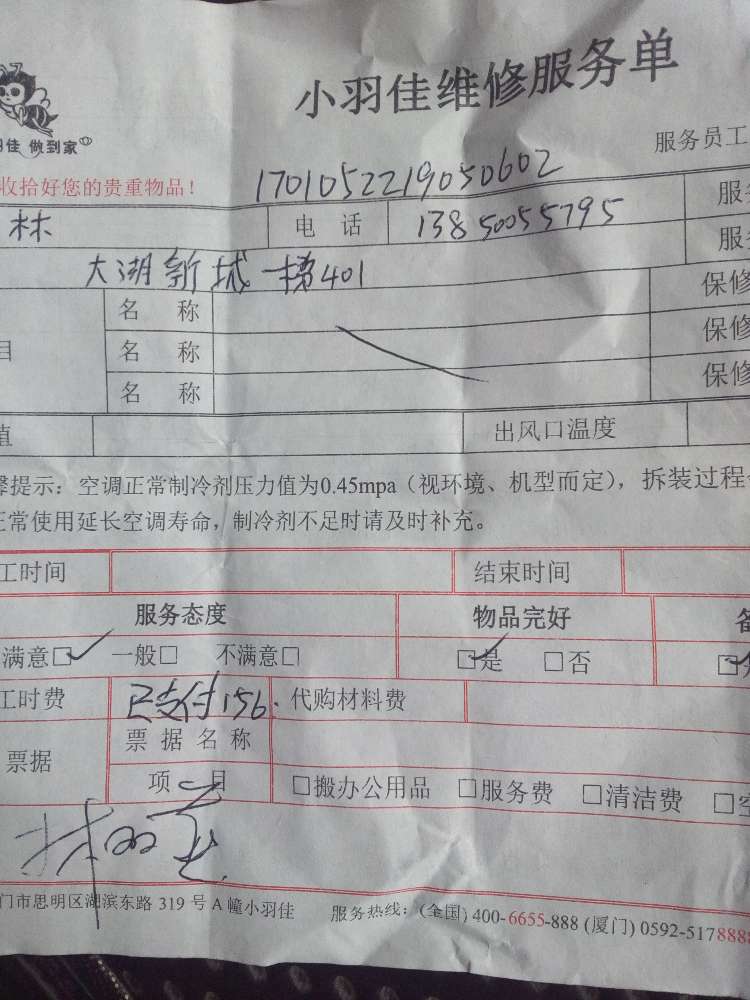 小羽佳维修服务单
羽佳 做到家
服务员工
收拾好您的贵重物品！
1701052219050602
林 电 话 13850055795 服
大湖新城一梯401 服
名 称 保修
目 名 称 保修
名 称 保修
值 出风口温度
馨提示：空调正常制冷剂压力值为0.45mpa（视环境、机型而定），拆装过程
正常使用延长空调寿命，制冷剂不足时请及时补充。
工时间 结束时间
服务态度 物品完好 备
满意□✓ 一般□ 不满意□ □是 □否 □
工时费 已支付156. 代购材料费
票据 票 据 名 称
项 目 □搬办公用品 □服务费 □清洁费 □空
门市思明区湖滨东路 319 号 A 幢小羽佳 服务热线：(全国) 400-6655-888 (厦门) 0592-5178888